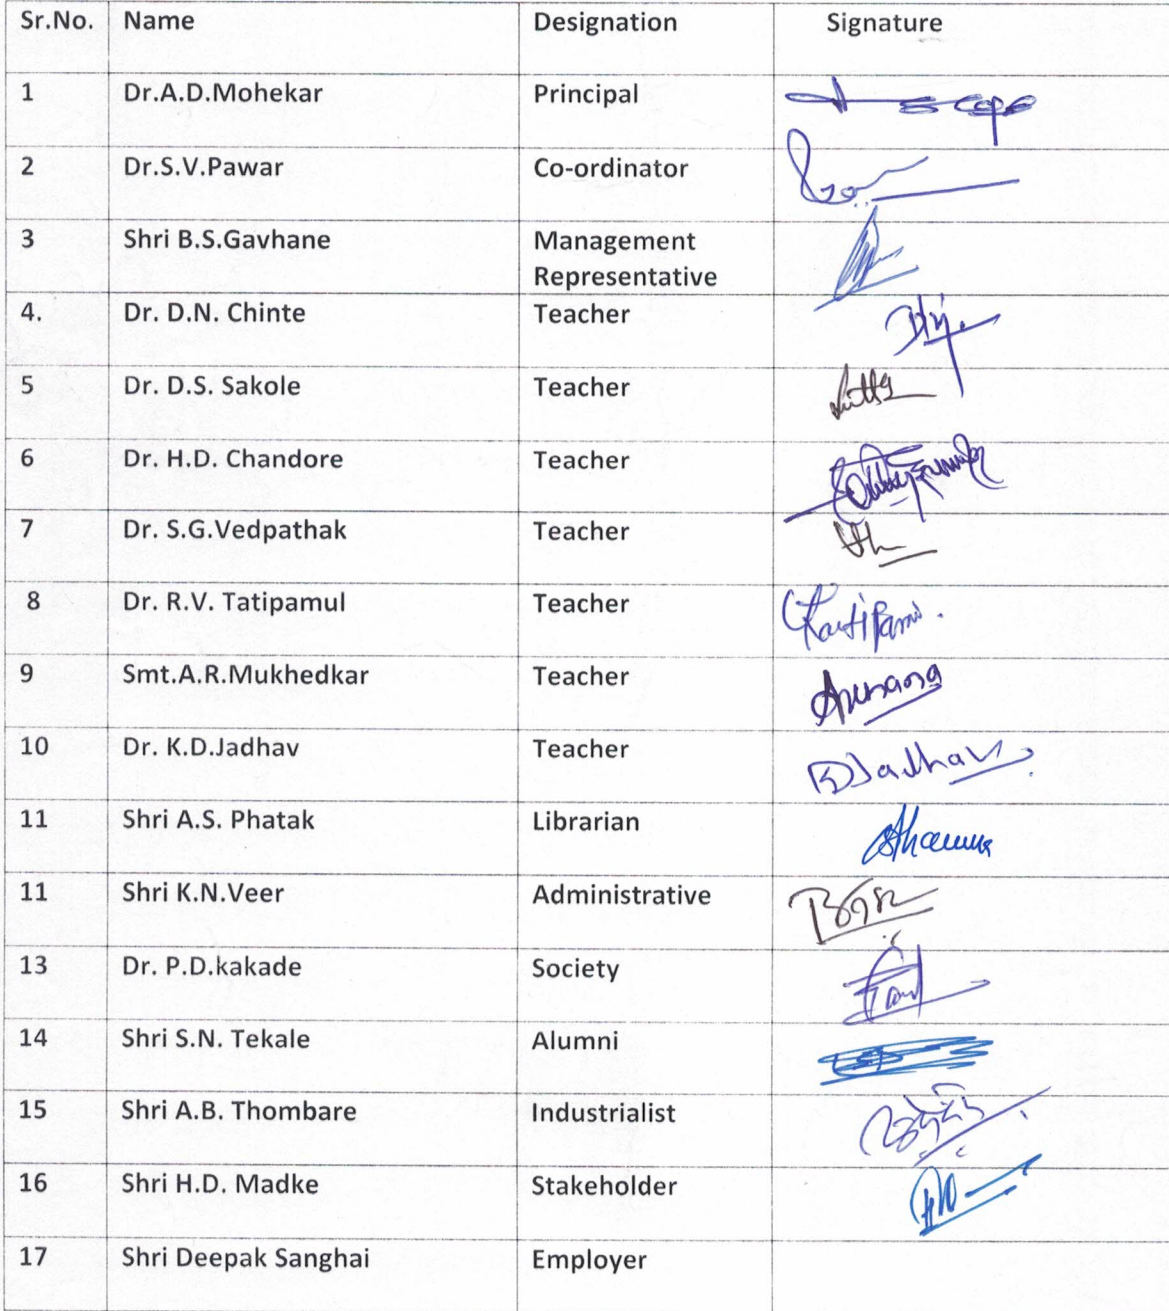 Sr.No. Name Designation Signature
1 Dr.A.D.Mohekar Principal
2 Dr.S.V.Pawar Co-ordinator
3 Shri B.S.Gavhane Management
Representative
4. Dr. D.N. Chinte Teacher
5 Dr. D.S. Sakole Teacher
6 Dr. H.D. Chandore Teacher
7 Dr. S.G.Vedpathak Teacher
8 Dr. R.V. Tatipamul Teacher
9 Smt.A.R.Mukhedkar Teacher
10 Dr. K.D.Jadhav Teacher KDJadhav
11 Shri A.S. Phatak Librarian
11 Shri K.N.Veer Administrative
13 Dr. P.D.kakade Society
14 Shri S.N. Tekale Alumni
15 Shri A.B. Thombare Industrialist
16 Shri H.D. Madke Stakeholder
17 Shri Deepak Sanghai Employer